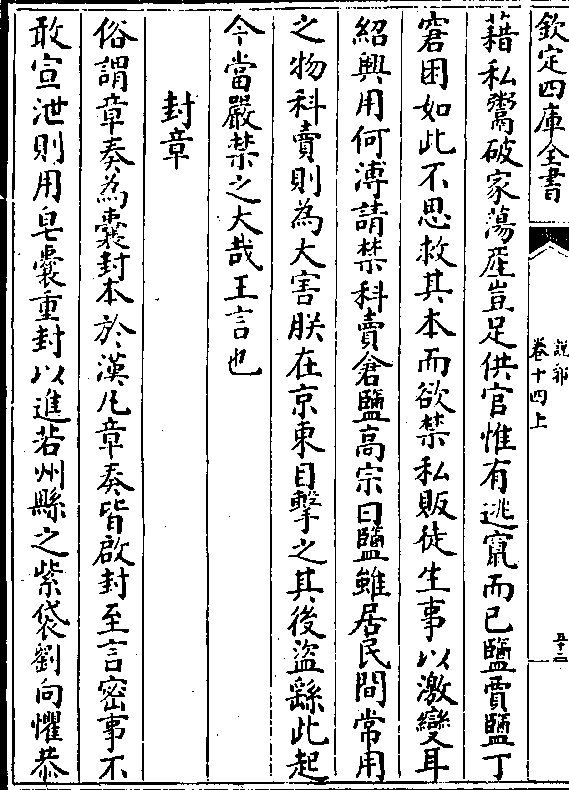 欽定四庫全書
說郛
卷十四上
五十二
藉私鬻破家蕩産豈足供官惟有逃竄而已鹽賈鹽丁
窘困如此不思救其本而欲禁私販徒生事以激變耳
紹興用何溥請禁科賣倉鹽高宗曰鹽雖居民間常用
之物科賣則為大害朕在京東目擊之其後盜繇此起
今當嚴禁之大哉王言也
封章
俗謂章奏為囊封本於漢凡章奏皆啟封至言密事不
敢宣泄則用皂囊重封以進若州縣之紫袋劉向懼恭